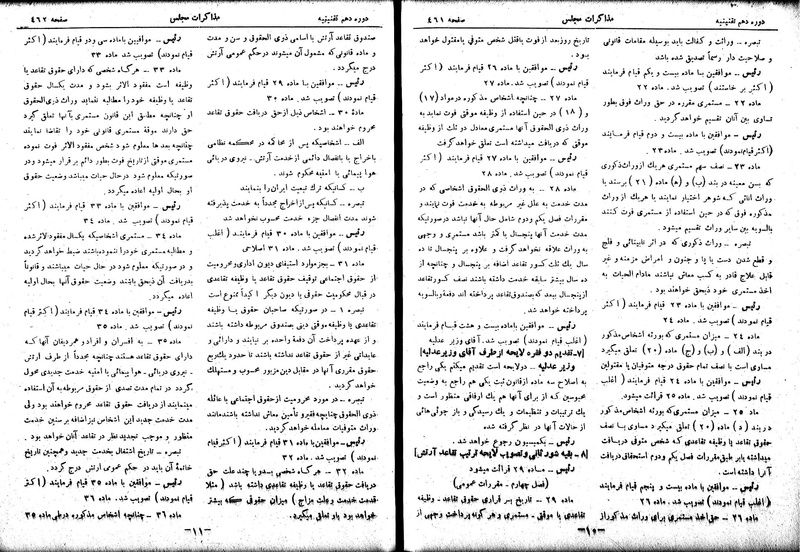 دوره دهم تقنینیه
مذاکرات مجلس
صفحه ۴۶۱
تبصره .. وراثت و کفالت باید بوسیله مقامات قانونی
و صلاحیت دار رسماً تصدیق شده باشد
رئیس .. موافقین با ماده بیست و یکم قیام فرمایند
( اکثر بر خاستند ) تصویب شد. ماده ۲۲
ماده ۲۲ ـ مستمری مقرره در حق وراث فوق بطور
تساوی بین آنان تقسیم خواهد گردید.
رئیس .. موافقین با ماده بیست و دوم قیام فرمایند
(اکثر قیام نمودند) تصویب شد. ماده ۲۳
ماده ۲۳ ـ نصف سهم مستمری هر یك از وراث ذكوری
که بسن معینه در بند (ب) و (ه) ماده ( ۲۱ ) برسند یا
وراث اناثی که شوهر اختیار نمایند یا هر یك از وراث
مذکوره فوق که در حین استفاده از مستمری فوت کنند
بالسویه بین سایر وراث تقسیم میشود.
تبصره .. وراث ذکوری که در اثر نابینائی و فلج
و قطع شدن دست یا پا و جنون و امراض مزمنه و غیر
قابل علاج قادر به کسب معاش نباشند مادام الحیات به
اخذ مستمری خود ذیحق خواهند بود.
رئیس .. موافقین با ماده ۲۳ قیام فرمایند ( اکثر
قیام نمودند ) تصویب شد. ماده ۲۴
ماده ۲۴ ـ میزان مستمری که بورثه اشخاص مذکور
در بند (الف) و (ب) و (ج) ماده (۲۰) تعلق میگیرد
مساوی است با نصف تمام حقوق درجه متوفیان یا مقتولین
رئیس .. موافقین با ماده ۲۴ قیام فرمایند ( اغلب
قیام نمودند ) تصویب شد. ماده ۲۵
ماد ۲۵ ـ میزان مستمری که بورثه اشخاص مذکور
در بند ( د ) ماده (۲۰) تعلق میگیرد مساوی با نصف
حقوق تقاعد یا وظیفه تقاعدی که شخص متوفی دریافت
میداشته یا بر طبق مقررات فصل یکم و دوم استحقاق دریافت
آنرا داشته است.
رئیس .. موافقین با ماده بیست و پنجم قیام فرمایند
( اغلب قیام نمودند ) تصویب شد. ماده ۲۶
ماده ۲۶ ـ حق اخذ مستمری برای وراث مذکور از
تاریخ روز بعد از فوت یا قتل شخص متوفی یا مقتول خواهد
بود.
رئیس .. موافقین با ماده ۲۶ قیام فرمایند ( اکثر
قیام نمودند ) تصویب شد. ماده ۲۷
ماده ۲۷ ـ چنانچه اشخاص مذکور در مواد (۱۷)
و (۱۸) در حین استفاده از وظیفه موقت فوت نمایند به
وراث ذوی الحقوق آنها مستمری معادل دو ثلث از وظیفه
موقتی که دریافت میداشته است تعلق خواهد گرفت
رئیس .. موافقین با ماده ۲۷ قیام فرمایند ( اکثر
قیام نمودند ) تصویب شد. ماده ۲۸
ماده ۲۸ ـ به وراث ذوی الحقوق اشخاصی که در
مدت خدمت به علل غیر مربوطه به خدمت فوت نمایند و
مقررات فصل یکم و دوم شامل حال آنها نباشد در صورتیکه
مدت خدمت آنها پنجسال یا کمتر باشد مستمری و وجهی
به وراث علاقه نخواهد گرفت و علاوه بر پنجسال تا ده
سال یك ثلث کسور تقاعد اضافه بر پنجسال و چنانچه از
ده سال بیشتر سابقه خدمت داشته باشند نصف کسور تقاعد
ازپنجسال ببعد که بصندوق تقاعد پرداخته اند دفعة بالسویه
پرداخته خواهد شد.
رئیس .. موافقین با ماده بیست و هشت قیام فرمایند
( اغلب قیام نمودند ) تصویب شد. آقای وزیر عدلیه
[۷ـ تقدیم دو فقره لایحه از طرف آقای وزیر عدلیه]
وزیر عدلیه .. دو لایحه است تقدیم میکنم یکی راجع
به اصلاح سه ماده از قانون ثبت یکی هم راجع به وضعیت
محبوسین که از برای آنها هم یك ارفاقی منظور است و
یك ترتیبات و تنظیمات و یك رسیدگی و باز جوئی هائی
از حالات آنها در نظر گرفته شده
رئیس .. بکمیسیون رجوع خواهد شد.
[۸ ـ بقیه شور ثانی و تصویب لایحه ترتیب تقاعد آرتش]
رئیس .. ماده ۲۹ قرائت میشود
(فصل چهارم ـ مقررات عمومی)
ماده ۲۹ ـ تاریخ بر قراری حقوق تقاعد ـ وظیفه
تقاعدی یا موقت ـ مستمری و هر گونه پرداخت وجهی از
ـ ۱۰ ـ
دوره دهم تقنینیه
مذاکرات مجلس
صفحه ۴۶۲
صندوق تقاعد آرتش با اسامی ذوی الحقوق و سن و مدت
و ماده قانونی که مشمول آن میشوند در حکم عمومی آرتش
درج میگردد.
رئیس .. موافقین با ماده ۲۹ قیام فرمایند ( اکثر
قیام نمودند ) تصویب شد. ماده ۳۰
مادهٔ ۳۰ ـ اشخاص ذیل از حق دریافت حقوق تقاعد
محروم خواهند بود.
الف ـ اشخاصیکه پس از محاکمه در محکمه نظامی
باخراج با انفصال دائمی از خدمت آرتش ـ نیروی دریائی
هوا پیمائی یا امنیه محکوم شوند.
ب ـ کسانیکه ترك تبعیت ایران را بنمایند
تبصره .. کسانیکه پس از اخراج مجدداً به خدمت پذیرفته
شوند مدت انفصال جزء خدمت محسوب نخواهد شد
رئیس .. موافقین با ماده ۳۰ قیام فرمایند ( اغلب
قیام نمودند ) تصویب شد. ماده ۳۱ اصلاحی
ماده ۳۱ ـ بجز موارد استیفای دیون اداری و محرومیت
از حقوق اجتماعی توقیف حقوق تقاعد یا وظیفه تقاعدی
در قبال محکومیت حقوق یا دیون دیگر اکیداً ممنوع است
تبصره ۱ ـ در صورتیکه صاحبان حقوق یا وظیفه
تقاعدی یا وظیفه موقتی دینی بصندوق مربوطه داشته باشند
و از عهده پرداخت آن دفعة واحده بر نیایند و دارائی و
عایداتی غیر از حقوق تقاعد نداشته باشند تا حدود یك ربع
حقوق مقرری آنها در مقابل دین مزبور محسوب و مستهلك
خواهد گردید.
تبصره .. در مورد محرومیت از حقوق اجتماعی با عائله
ذوی الحقوق چنانچه فقیر و تأمین معاش نداشته باشند مانند
وراث متوفیات معامله خواهد گردید.
رئیس .. موافقین با ماده ۳۱ قیام فرمایند ( اکثر قیام
نمودند ) تصویب شد. ماده ۳۲
ماده ۳۲ ـ هر گاه شخصی بدو یا چند علت حق
دریافت حقوق تقاعد یا وظیفه تقاعدی داشته باشد ( مثلا
قدمت خدمت و علت مزاج ) میزان حقوقی که بیشتر
خواهد بود باو تعلق میگیرد.
رئیس .. موافقین با ماده سی و دو قیام فرمایند ( اکثر
قیام نمودند ) تصویب شد. ماده ۳۳
ماده ۳۳ ـ هر گاه شخصی که دارای حق تقاعد یا
وظیفه است مفقود الاثر بشود و مدت یکسال حقوق
تقاعد یا وظیفه خود را مطالبه ننماید وراث ذوی الحقوق
او چنانچه مطابق این قانون مستمری بآنها تعلق گیرد
حق دارند موقة مستمری قانونی خود را تقاضا نمایند
چنانچه بعدها معلوم شود شخص مفقود الاثر فوت نموده
مستمری موقتی از تاریخ فوت بطور دائم بر قرار میشود و در
صورتیکه معلوم شود در حال حیات میباشد وضعیت حقوقی
او بحال اولیه اعاده میگردد.
رئیس .. موافقین با ماده ۳۳ قیام فرمایند ( اکثر
قیام نمودند ) تصویب شد. ماده ۳۴
ماده ۳۴ ـ مستمری اشخاصیکه یکسال مفقود الاثر شده
و مطالبه مستمری خود را ننموده باشند ضبط خواهد گردید
و در صورتیکه معلوم شود در حال حیات میباشند و قانوناً
بدریافت آن ذیحق باشند وضعیت حقوقی آنها بحال اولیه
اعاده میگردد.
رئیس .. موافقین با ماده ۳۴ قیام فرمایند ( اکثر
قیام نمودند ) تصویب شد. ماده ۳۵
ماده ۳۵ ـ به افسران و افراد و همردیفان آنها که
دارای حقوق تقاعد هستند چنانچه مجدداً از طرف ارتش
ـ نیروی دریائی ـ هوا پیمائی یا امنیه خدمت جدیدی محول
گردد در تمام مدت تصدی از حقوق مربوطه به آن استفاده
مینمایند از دریافت حقوق تقاعد محروم خواهند بود ولی
مدت خدمت جدید این اشخاص نیز اضافه بر سنین خدمت
منظور و موجب تجدید نظر در تقاعد آنان خواهد بود.
تبصره ـ تاریخ اشتغال بخدمت جدید و همچنین تاریخ
خاتمهٔ آن باید در حکم عمومی ارتش درج گردد.
رئیس .. موافقین با ماده ۳۵ قیام فرمایند ( اکثر
قیام نمودند ) تصویب شد. ماده ۳۶
ماده ۳۶ ـ چنانچه اشخاص مذکوره در طی ماده ۳۵
ـ ۱۱ ـ